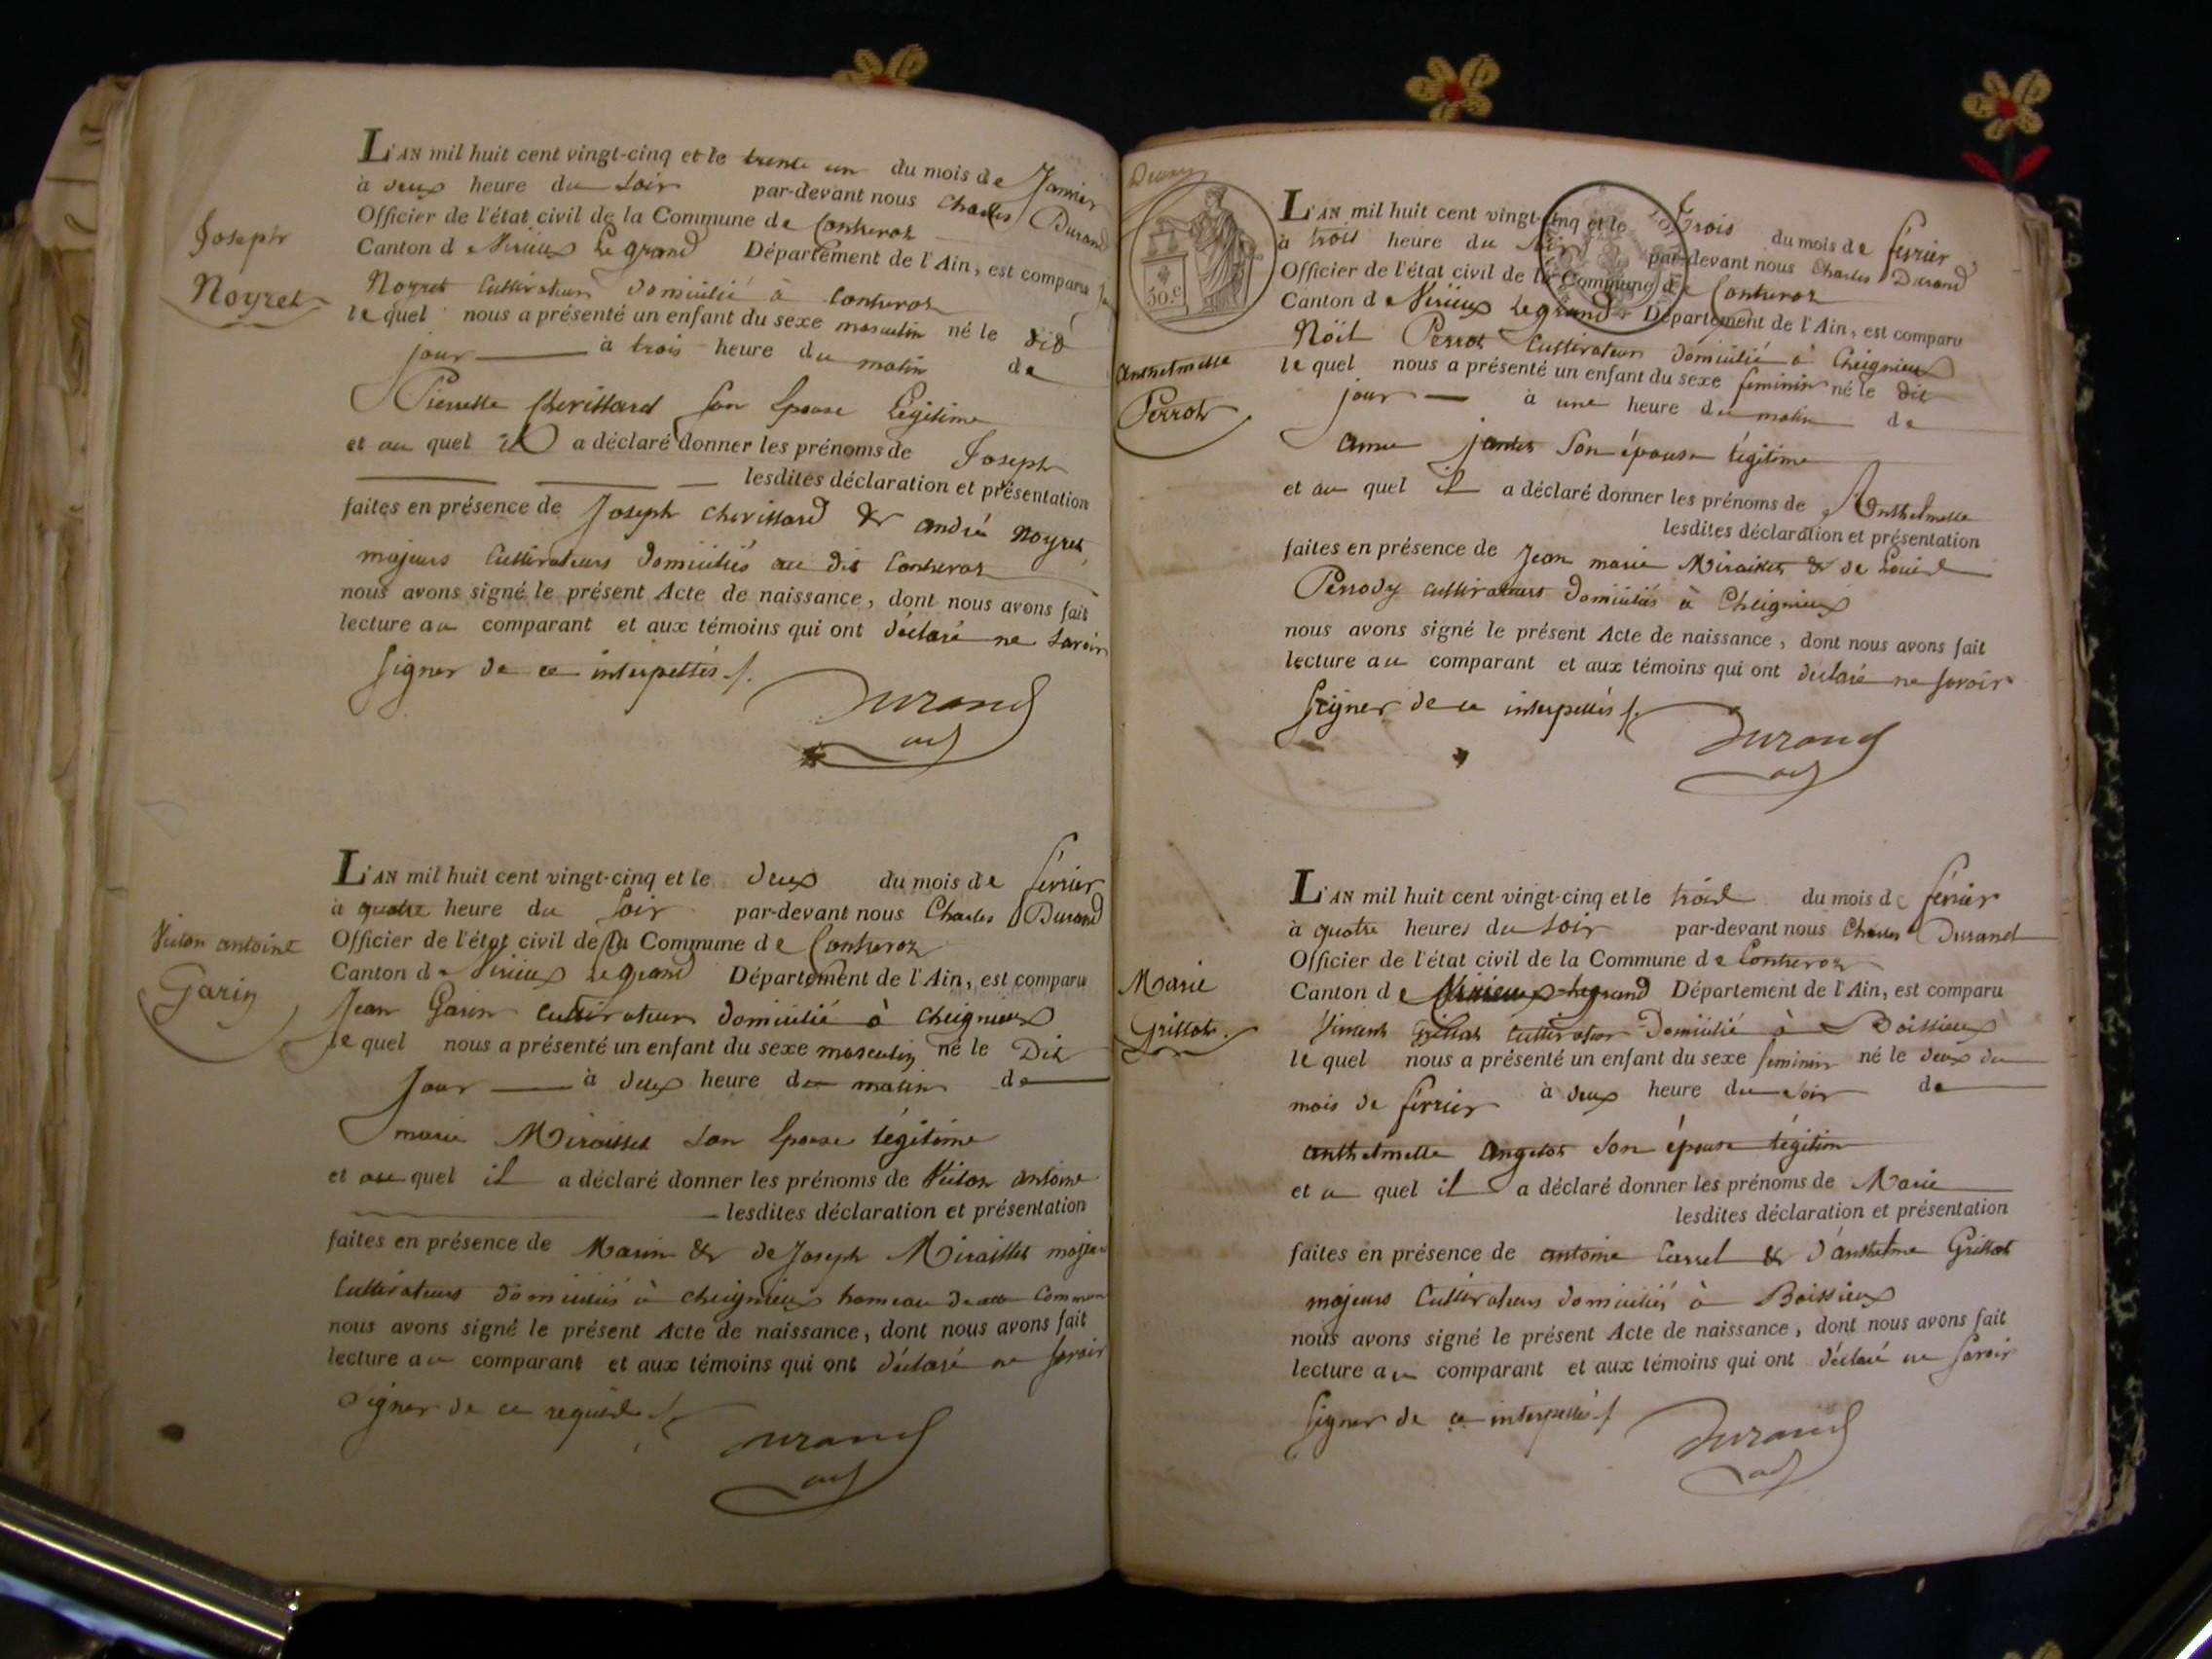 Joseph
Noyret
L'AN mil huit cent vingt-cinq et le trente un du mois de Janvier
à deux heure du Soir par-devant nous Charles Durand
Officier de l'état civil de la Commune de Contrevoz
Canton de Virieux Le grand Département de l'Ain, est comparu
Noyret Cultivateur domicilié à Contrevoz
le quel nous a présenté un enfant du sexe masculin né le dit
jour à trois heure du matin de
Pierrette Chevillard Son Epouse Légitime
et au quel il a déclaré donner les prénoms de Joseph
lesdites déclaration et présentation
faites en présence de Joseph Chevillard & andré Noyret
majeurs Cultivateurs domiciliés au dit Contrevoz
nous avons signé le présent Acte de naissance, dont nous avons fait
lecture au comparant et aux témoins qui ont déclaré ne Savoir
Signer de ce interpellés
Durand
Victor antoine
Garin
L'AN mil huit cent vingt-cinq et le deux du mois de février
à quatre heure du Soir par-devant nous Charles Durand
Officier de l'état civil de la Commune de Contrevoz
Canton de Virieux Le grand Département de l'Ain, est comparu
Jean Garin Cultivateur domicilié à Cheignieux
le quel nous a présenté un enfant du sexe masculin né le Dit
Jour à deux heure du matin de
marie Miraillet Son Epouse légitime
et au quel il a déclaré donner les prénoms de Victor antoine
lesdites déclaration et présentation
faites en présence de Marin & de Joseph Miraillet majeurs
Cultivateurs domiciliés à cheignieux hameau de Commune
nous avons signé le présent Acte de naissance, dont nous avons fait
lecture au comparant et aux témoins qui ont déclaré ne Savoir
Signer de ce requis
Durand
50.c
anthelmette
Perrot
L'AN mil huit cent vingt-cinq et le trois du mois de février
à trois heure du Soir par-devant nous Charles Durand
Officier de l'état civil de la Commune de Contrevoz
Canton de Virieux Legrand Département de l'Ain, est comparu
Noël Perrot Cultivateur domicilié à Cheignieux
le quel nous a présenté un enfant du sexe feminin né le dit
jour à une heure du matin de
anne Son épouse légitime
et au quel il a déclaré donner les prénoms de Anthelmette
lesdites déclaration et présentation
faites en présence de Jean marie Miraillet & de Louis
Perrody cultivateurs domiciliés à Cheignieux
nous avons signé le présent Acte de naissance, dont nous avons fait
lecture au comparant et aux témoins qui ont déclaré ne Savoir
Signer de ce interpellés
Durand
Marie
Grillot
L'AN mil huit cent vingt-cinq et le trois du mois de février
à quatre heures du Soir par-devant nous Charles Durand
Officier de l'état civil de la Commune de Contrevoz
Canton de Virieux legrand Département de l'Ain, est comparu
Vincent Grillot Cultivateur Domicilié à Boissieux
le quel nous a présenté un enfant du sexe feminin né le deux du
mois de février à deux heure du Soir de
anthelmette Angelot Son épouse légitime
et au quel il a déclaré donner les prénoms de Marie
lesdites déclaration et présentation
faites en présence de antoine & d'anthelme Grillot
majeurs Cultivateurs domiciliés à Boissieux
nous avons signé le présent Acte de naissance, dont nous avons fait
lecture au comparant et aux témoins qui ont déclaré ne Savoir
Signer de ce interpellés
Durand